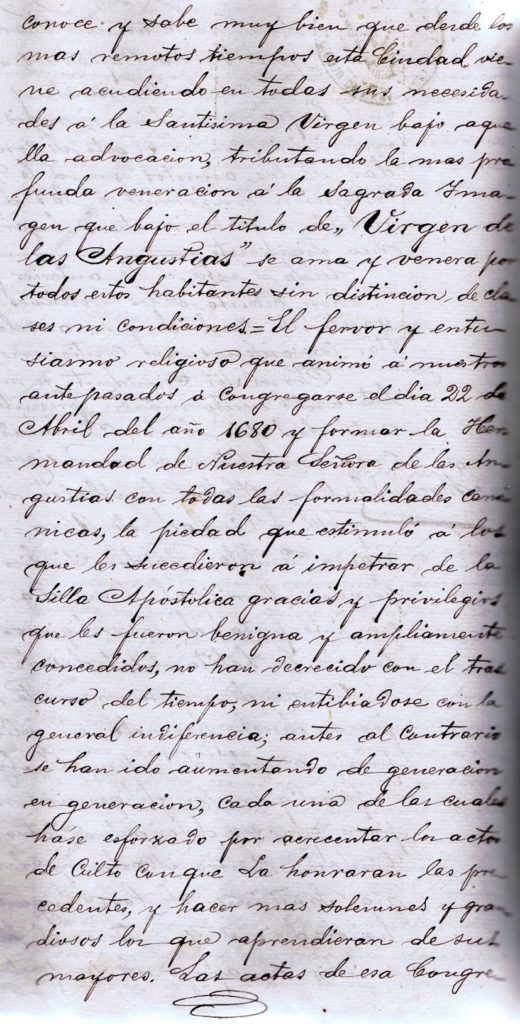 conoce y sabe muy bien que desde los
mas remotos tiempos esta Ciudad vie-
ne acudiendo en todas sus necesida-
des á la Santisima Virgen bajo aque
lla advocacion, tributando la mas pro
funda veneracion á la Sagrada Ima-
gen que bajo el titulo de „Virgen de
las Angustias" se ama y venera por
todos estos habitantes sin distincion de cla
ses ni condiciones = El fervor y entu
siasmo religioso que animó á nuestros
antepasados á congregarse el dia 22 de
Abril del año 1680 y formar la Her
mandad de Nuestra Señora de las An-
gustias con todas las formalidades cano
nicas, la piedad que estimuló á los
que les sucedieron á impetrar de la
Silla Apóstolica gracias y privilegios
que les fueron benigna y ampliamente
concedidos, no han decrecido con el tras
curso del tiempo, ni entibiadose con la
general indiferencia; antes al contrario
se han ido aumentando de generacion
en generacion, cada una de las cuales
háse esforzado por acrecentar los actos
de Culto con que La honraran las pre
cedentes, y hacer mas solemnes y gran
diosos los que aprendieran de sus
mayores. Las actas de esa Congre-